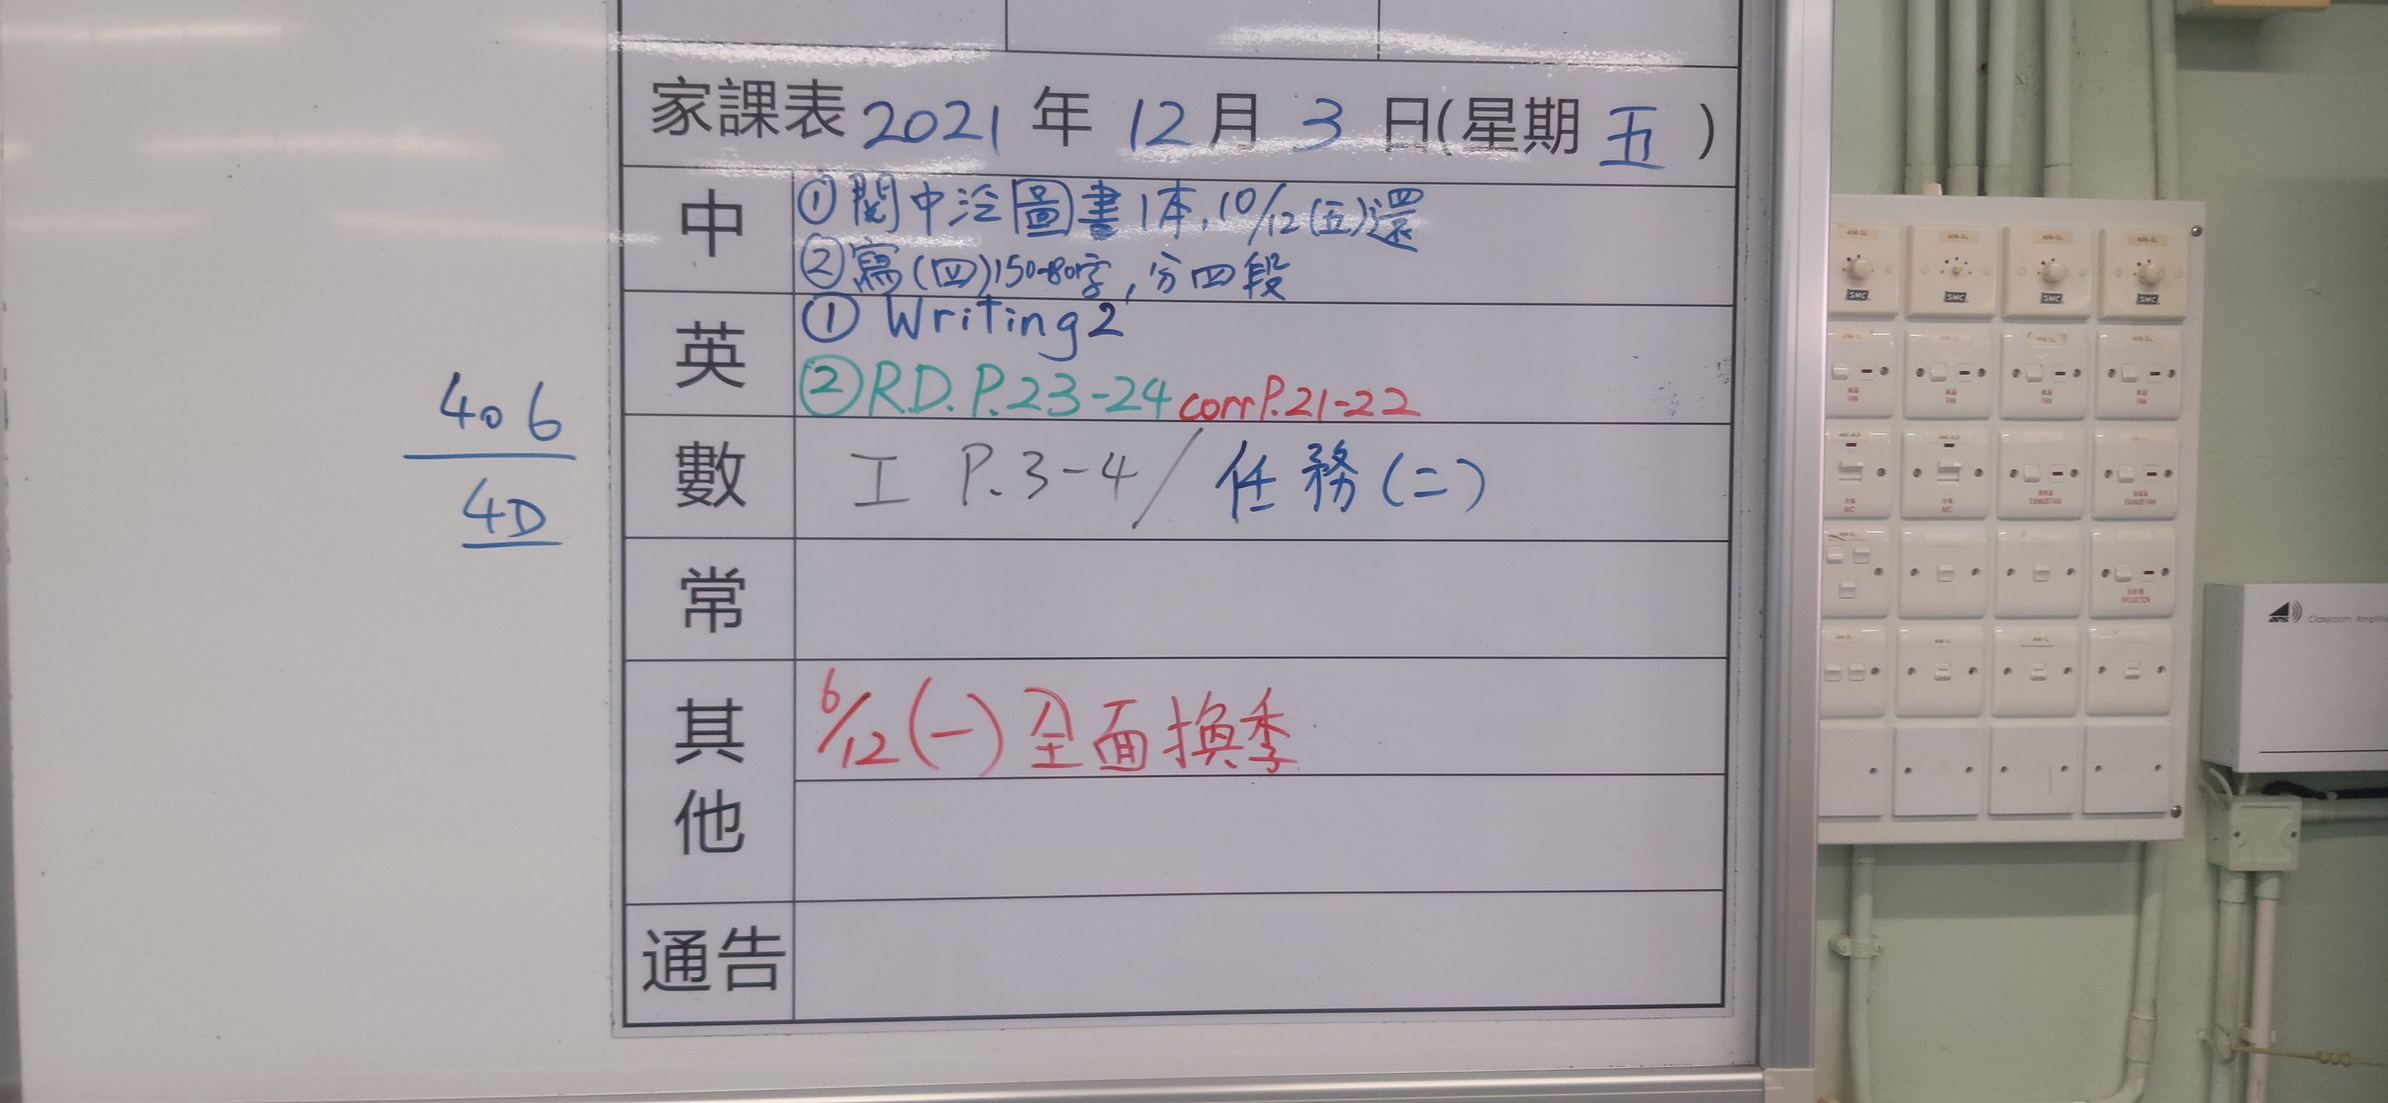 家課表 2021 年 12 月 3 日(星期 五 )
中
①閱中泛圖書1本,10/12(五)還
②寫(四)150-180字,分四段
英
① Writing2
②R.D. P.23-24 corr P.21-22
數
工 P.3-4/任務(二)
常
其他
6/12(一)全面換季
通告
406
4D
SMC
SMC
SMC
SMC
FAN
FAN
FAN
FAN
A/C
A/C
EXHAUST FAN
EXHAUST FAN
PROJECTOR
Classroom Amplifie